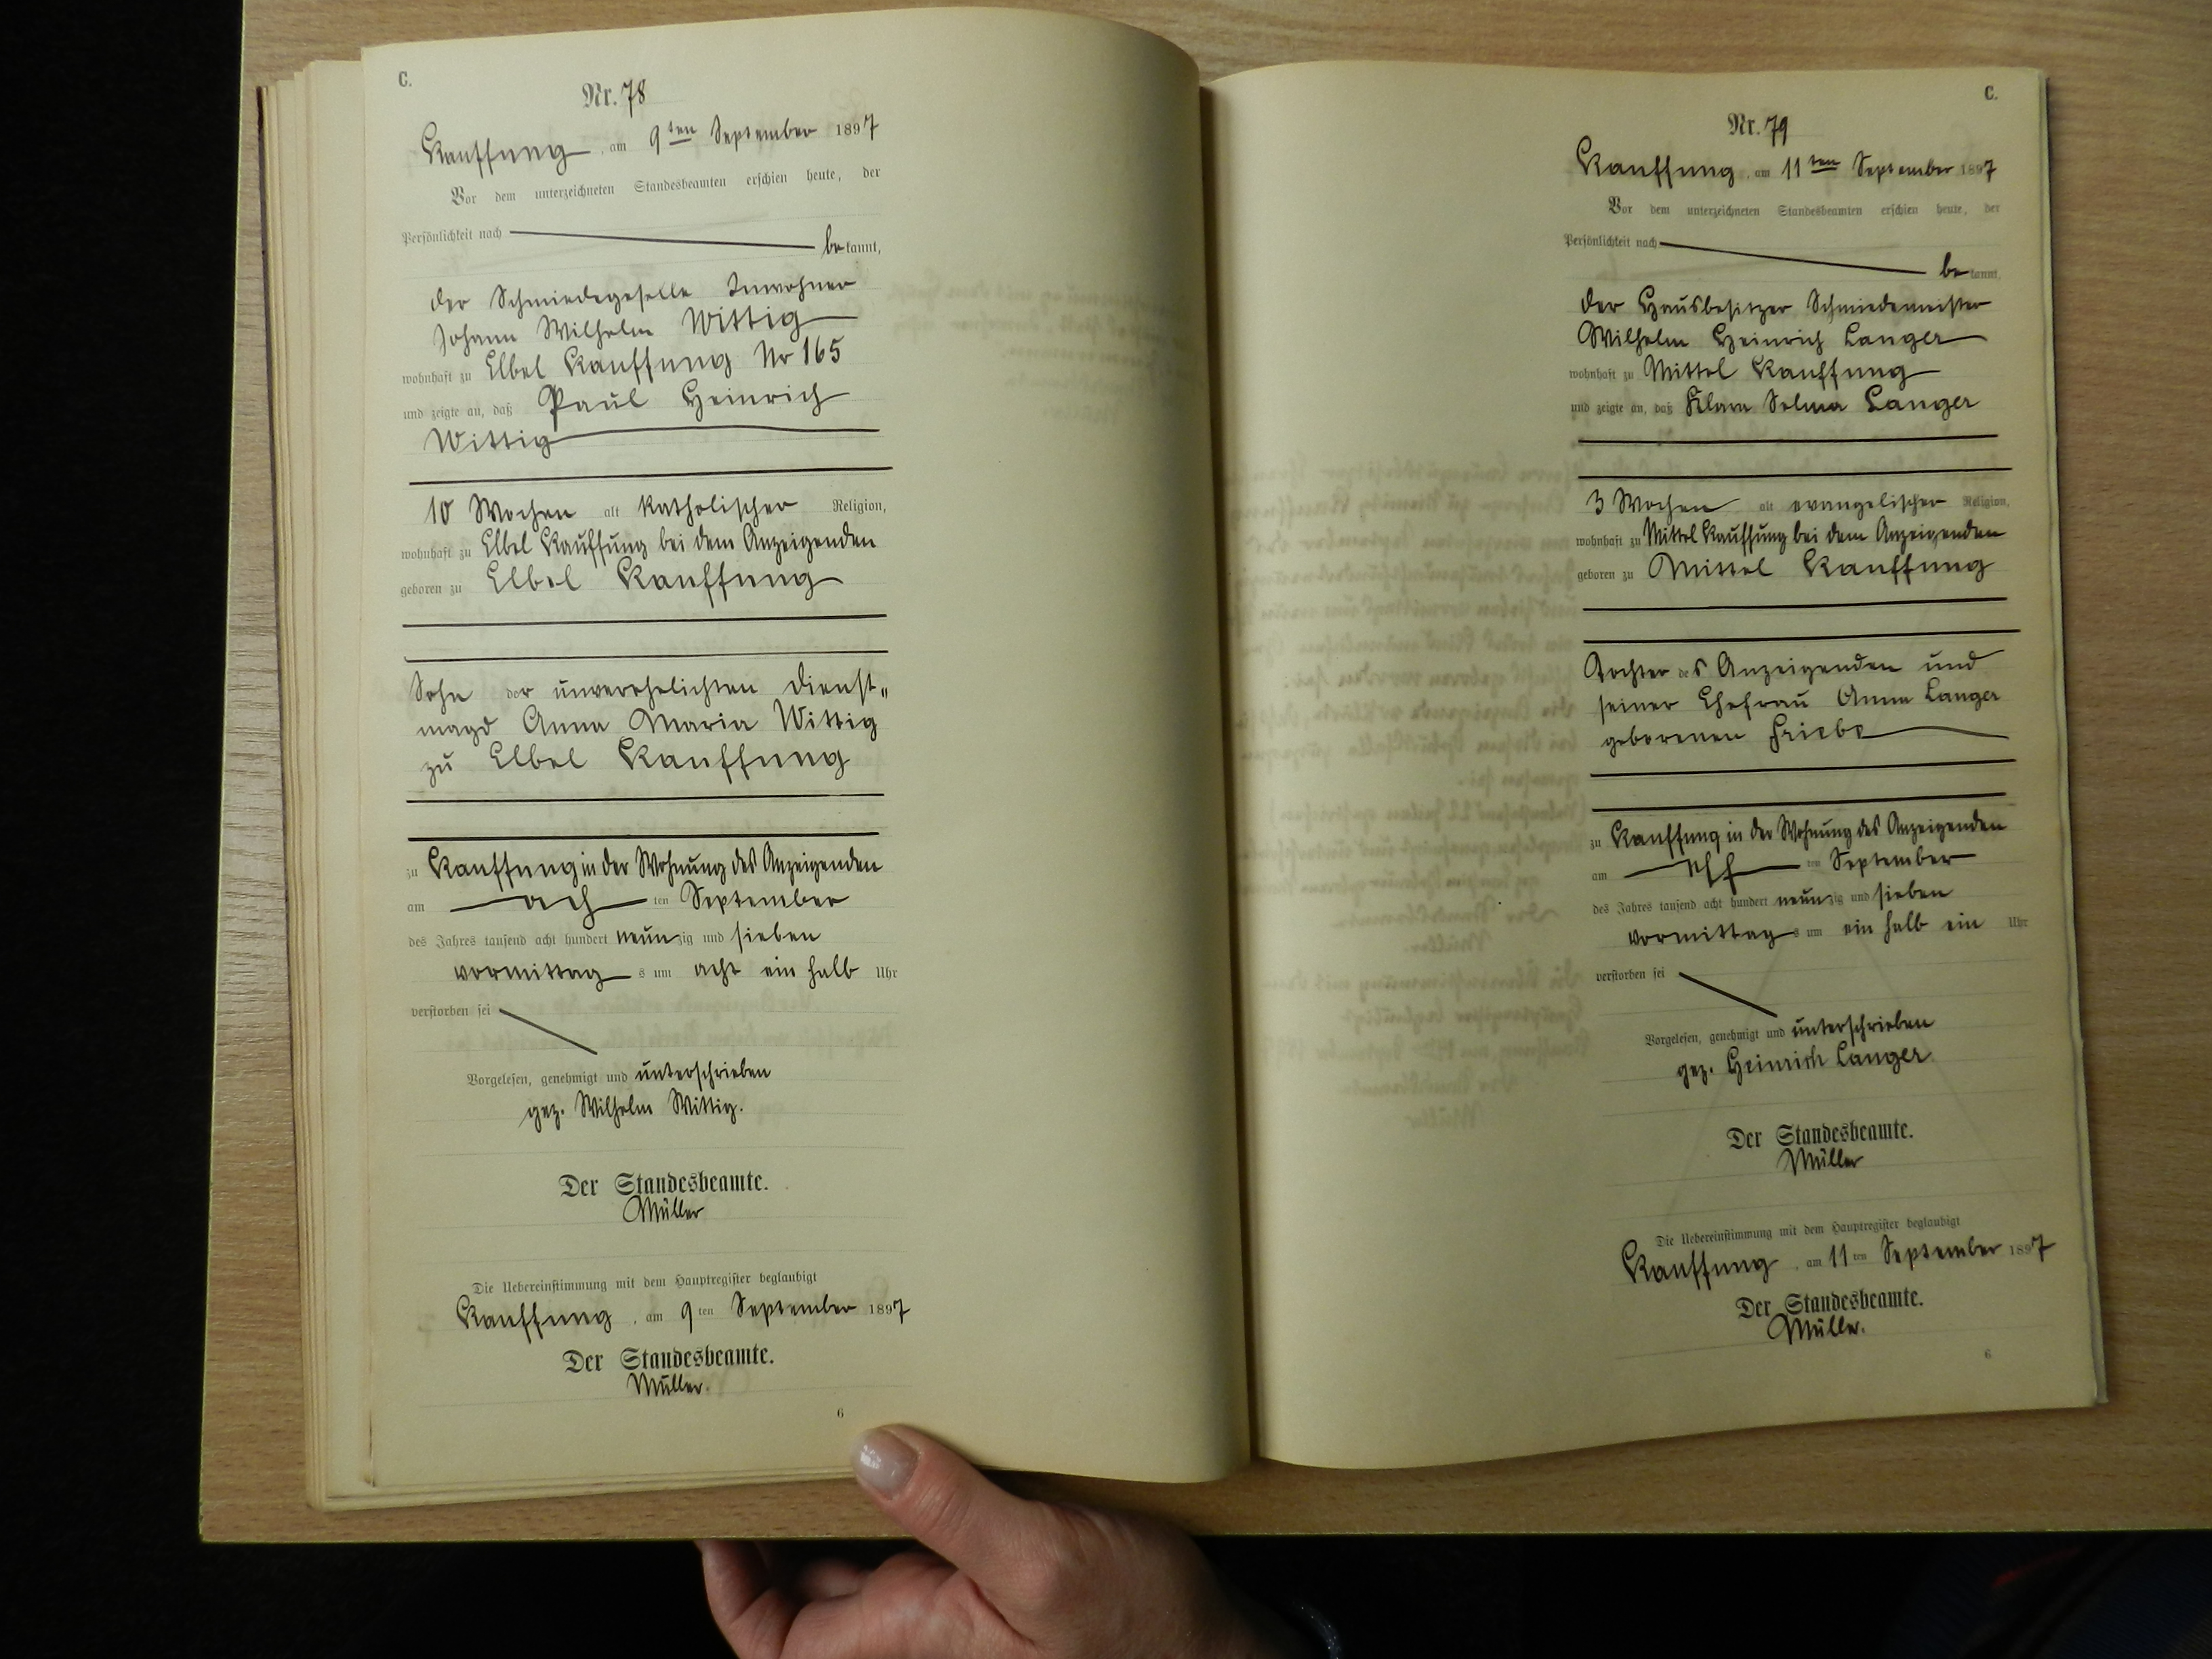 C.
Nr. 78
Kauffung, am 9ten September 1897
Vor dem unterzeichneten Standesbeamten erschien heute, der
Persönlichkeit nach
bekannt,
der Schmiedegeselle Inwohner
Johann Wilhelm Wittig
wohnhaft zu Elbel Kauffung No 165
und zeigte an, daß Paul Heinrich
Wittig
10 Wochen alt katholischer Religion,
wohnhaft zu Elbel Kauffung bei dem Anzeigenden
geboren zu Elbel Kauffung
Sohn der unverehelichten Dienst„
magd Anna Maria Wittig
zu Elbel Kauffung
zu Kauffung in der Wohnung des Anzeigenden
am ach ten September
des Jahres tausend acht hundert neunzig und sieben
vormittags um acht ein halb Uhr
verstorben sei
Vorgelesen, genehmigt und unterschrieben
gez. Wilhelm Wittig.
Der Standesbeamte.
Müller
Die Uebereinstimmung mit dem Hauptregister beglaubigt
Kauffung, am 9ten September 1897
Der Standesbeamte.
Müller.
6
C.
Nr. 79
Kauffung, am 11ten September 1897
Vor dem unterzeichneten Standesbeamten erschien heute, der
Persönlichkeit nach
bekannt,
der Hausbesitzer Schmiedemeister
Wilhelm Heinrich Langer
wohnhaft zu Mittel Kauffung
und zeigte an, daß Klara Selma Langer
3 Wochen alt evangelischer Religion,
wohnhaft zu Mittel Kauffung bei dem Anzeigenden
geboren zu Mittel Kauffung
Tochter des Anzeigenden und
seiner Ehefrau Anna Langer
geborenen Friebe
zu Kauffung in der Wohnung des Anzeigenden
am elf ten September
des Jahres tausend acht hundert neunzig und sieben
vormittags um ein halb ein Uhr
verstorben sei
Vorgelesen, genehmigt und unterschrieben
gez. Heinrich Langer.
Der Standesbeamte.
Müller
Die Uebereinstimmung mit dem Hauptregister beglaubigt
Kauffung, am 11ten September 1897
Der Standesbeamte.
Müller.
6